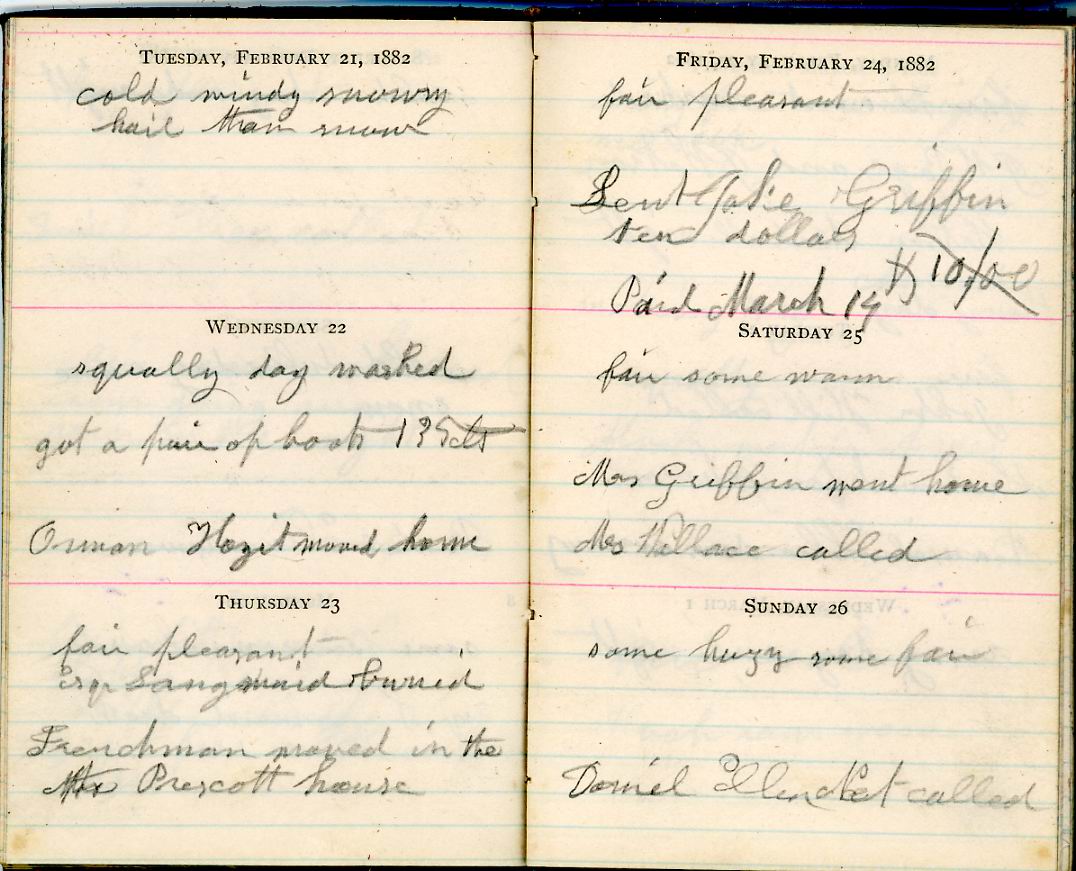 TUESDAY, FEBRUARY 21, 1882
cold windy snowy
hail then snow
WEDNESDAY 22
squally day washed
got a pair of boots 135cts
Orman moved home
THURSDAY 23
fair pleasant
Esqr Sangmaid buried
Frenchman moved in the
Prescott house
FRIDAY, FEBRUARY 24, 1882
fair pleasant
Sent Jake Griffin
ten dollars
$10/00
Paid March 14
SATURDAY 25
fair some warm
Mrs Griffin went home
Mrs Wallace called
SUNDAY 26
some hazy some fair
Daniel Ellen Nat called